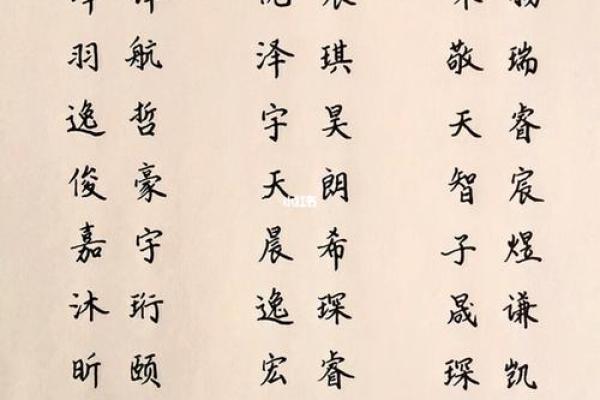 羽航 泽琪 敬瑞
逸哲 宇昊 天睿
俊豪 天朗 智宸
小红书
嘉宇 晨希 子煜
沐珩 逸琛 晟谦
昕颐 宏睿 琛凯